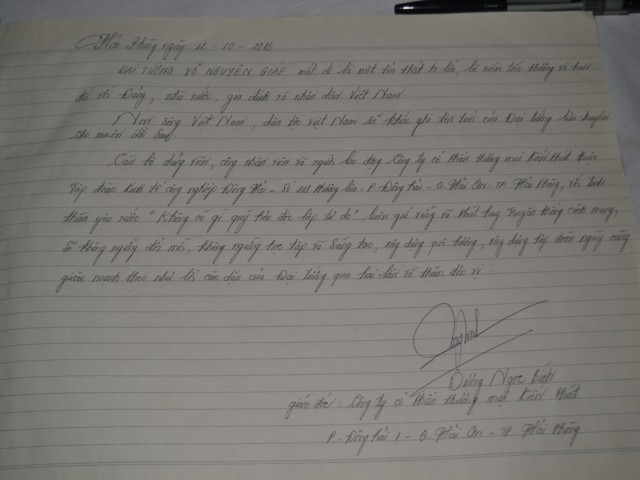 Hải Phòng ngày 12 - 10 - 2013
ĐẠI TƯỚNG VÕ NGUYÊN GIÁP mất đi là một tổn thất to lớn, là niềm tiếc thương vô hạn
đối với Đảng, nhà nước, gia đình và nhân dân Việt Nam.
Non sông Việt Nam, dân tộc Việt Nam sẽ khắc ghi tên tuổi của Đại tướng lưu truyền
cho muôn đời sau.
Cán bộ đảng viên, công nhân viên và người lao động Công ty cổ phần thương mại Kiến Phát thuộc
Tập đoàn kinh tế công nghiệp Đông Hải - Số - P. Đông Hải - Q. Hải An - TP. Hải Phòng, với tinh
thần yêu nước "Không có gì quý hơn độc lập tự do" luôn giữ vững và phát huy truyền thống cách mạng,
không ngừng đổi mới, không ngừng học tập và sáng tạo, xây dựng quê hương, xây dựng tập đoàn ngày càng
giàu mạnh theo như lời căn dặn của Đại tướng qua hai lần về thăm đơn vị.
Dương Ngọc
giám đốc: Công ty cổ phần thương mại Kiến Phát
P. Đông Hải 1 - Q. Hải An - TP. Hải Phòng.